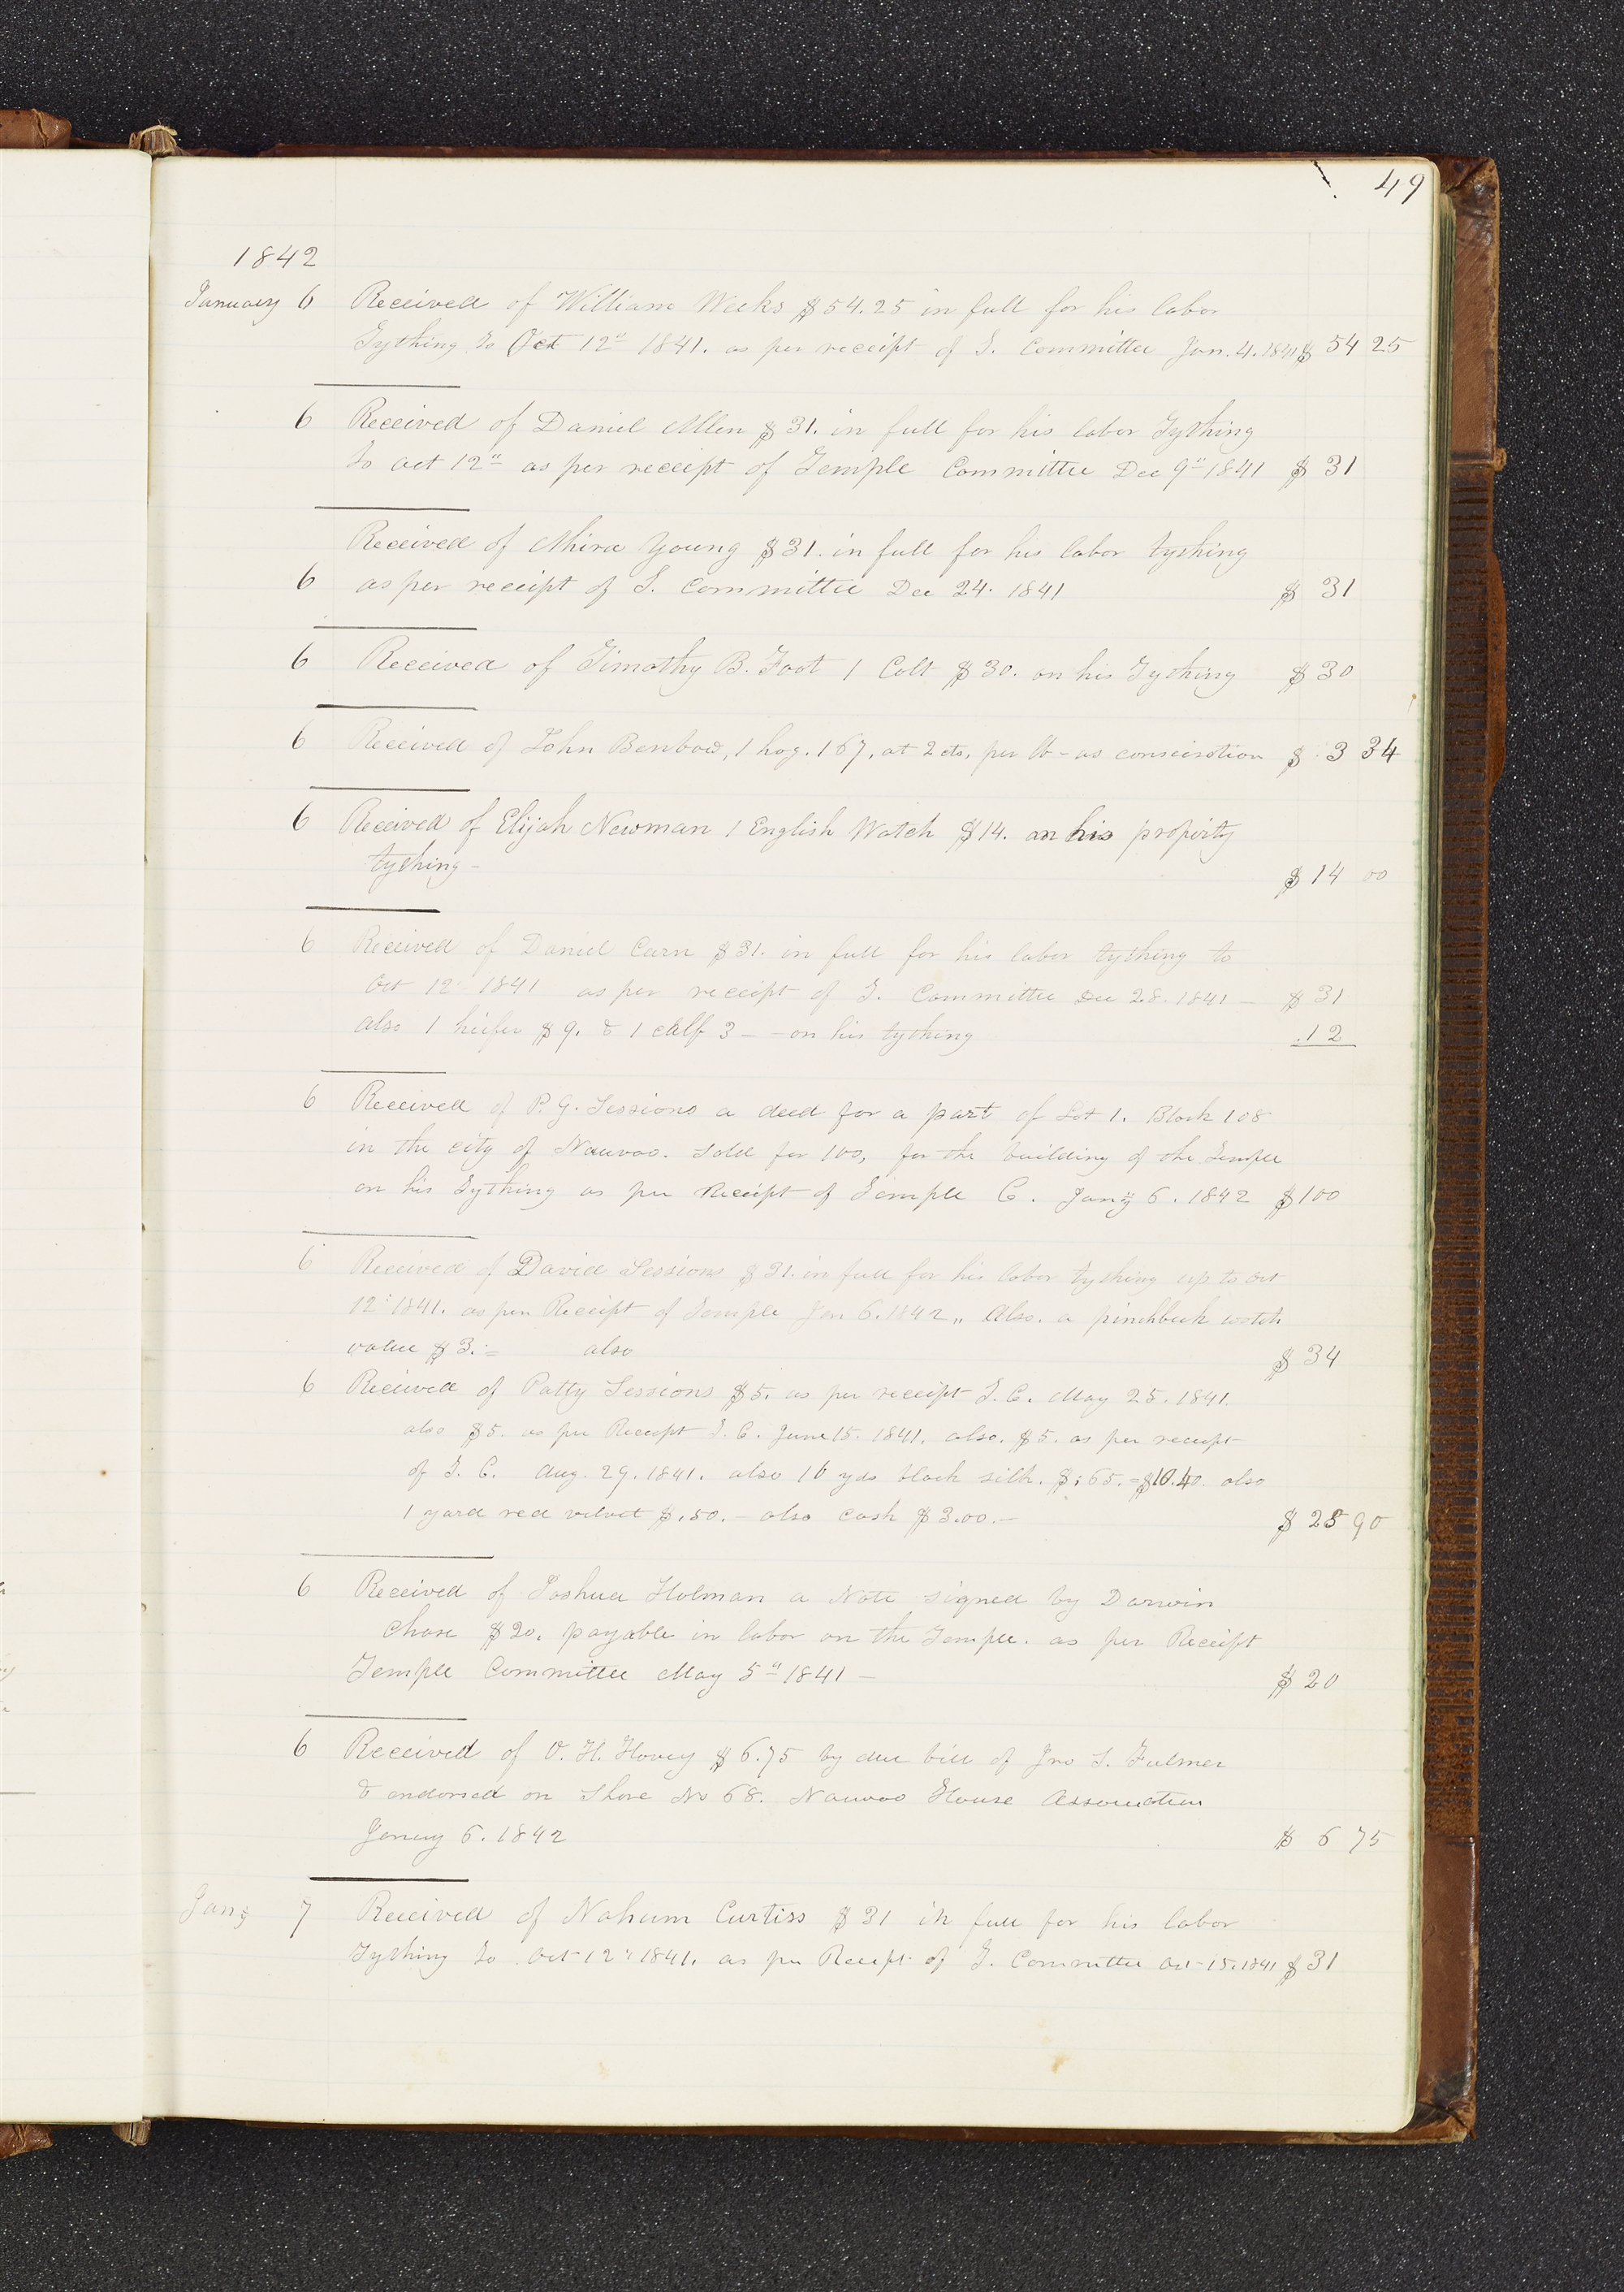 49
1842
January 6 Received of William Weeks $54.25 in full for his labor
Tything to Oct 12" 1841. as per receipt of T. Committee Jan. 4. 1841 $ 54 25
6 Received of Daniel Allen $31. in full for his labor Tything
to Oct 12" as per receipt of Temple Committee Dec 9" 1841 $ 31
Received of Young $31. in full for his labor tything
6 as per receipt of T. Committee Dec 24. 1841 $ 31
6 Received of Timothy B. Foot 1 Colt $30. on his Tything $ 30
6 Received of John Benbow, 1 hog. 167, at 2 cts, per lb - as $ 3 34
6 Received of Elijah Newman 1 English Watch $14. on his property
tything - $ 14 00
6 Received of Daniel Carn $31. in full for his labor tything to
Oct 12" 1841 as per receipt of T. Committee Dec 28. 1841 — $ 31
also 1 heifer $9. & 1 calf 3 — - on his tything .12
6 Received of P. G. Sessions a deed for a part of Lot 1. Block 108
in the city of Nauvoo. sold for 100, for the building of the Temple
on his Tything as per Receipt of Temple C. Jany 6. 1842 $100
6 Received of David Sessions $31. in full for his labor tything up to Oct
12" 1841. as per Receipt of Temple Jan 6. 1842 ,, Also. a pinchbeck watch
value $3. = also $ 34
6 Received of Patty Sessions $5. as per receipt T. C. May 25. 1841.
also $5. as per Receipt T. C. June 15. 1841. also. $5. as per receipt
of T. C. Aug. 29. 1841. also 16 yds black silk. $.65. = $10.40. also
1 yard red velvet $.50. - also cash $3.00. — $ 28 90
6 Received of Joshua Holman a Note signed by Darwin
Chase $20. payable in labor on the Temple. as per Receipt
Temple Committee May 5" 1841 — $ 20
6 Received of O. H. Hovey $6.75 by due bill of Jno S. Fulmer
& endorsed on Share No 68. Nauvoo House Association
6. 1842 $ 6 75
Jany 7 Received of Nahum Curtiss $31 in full for his labor
Tything to Oct 12" 1841. as per Receipt of T. Committee Oct - 15. 1841 $ 31